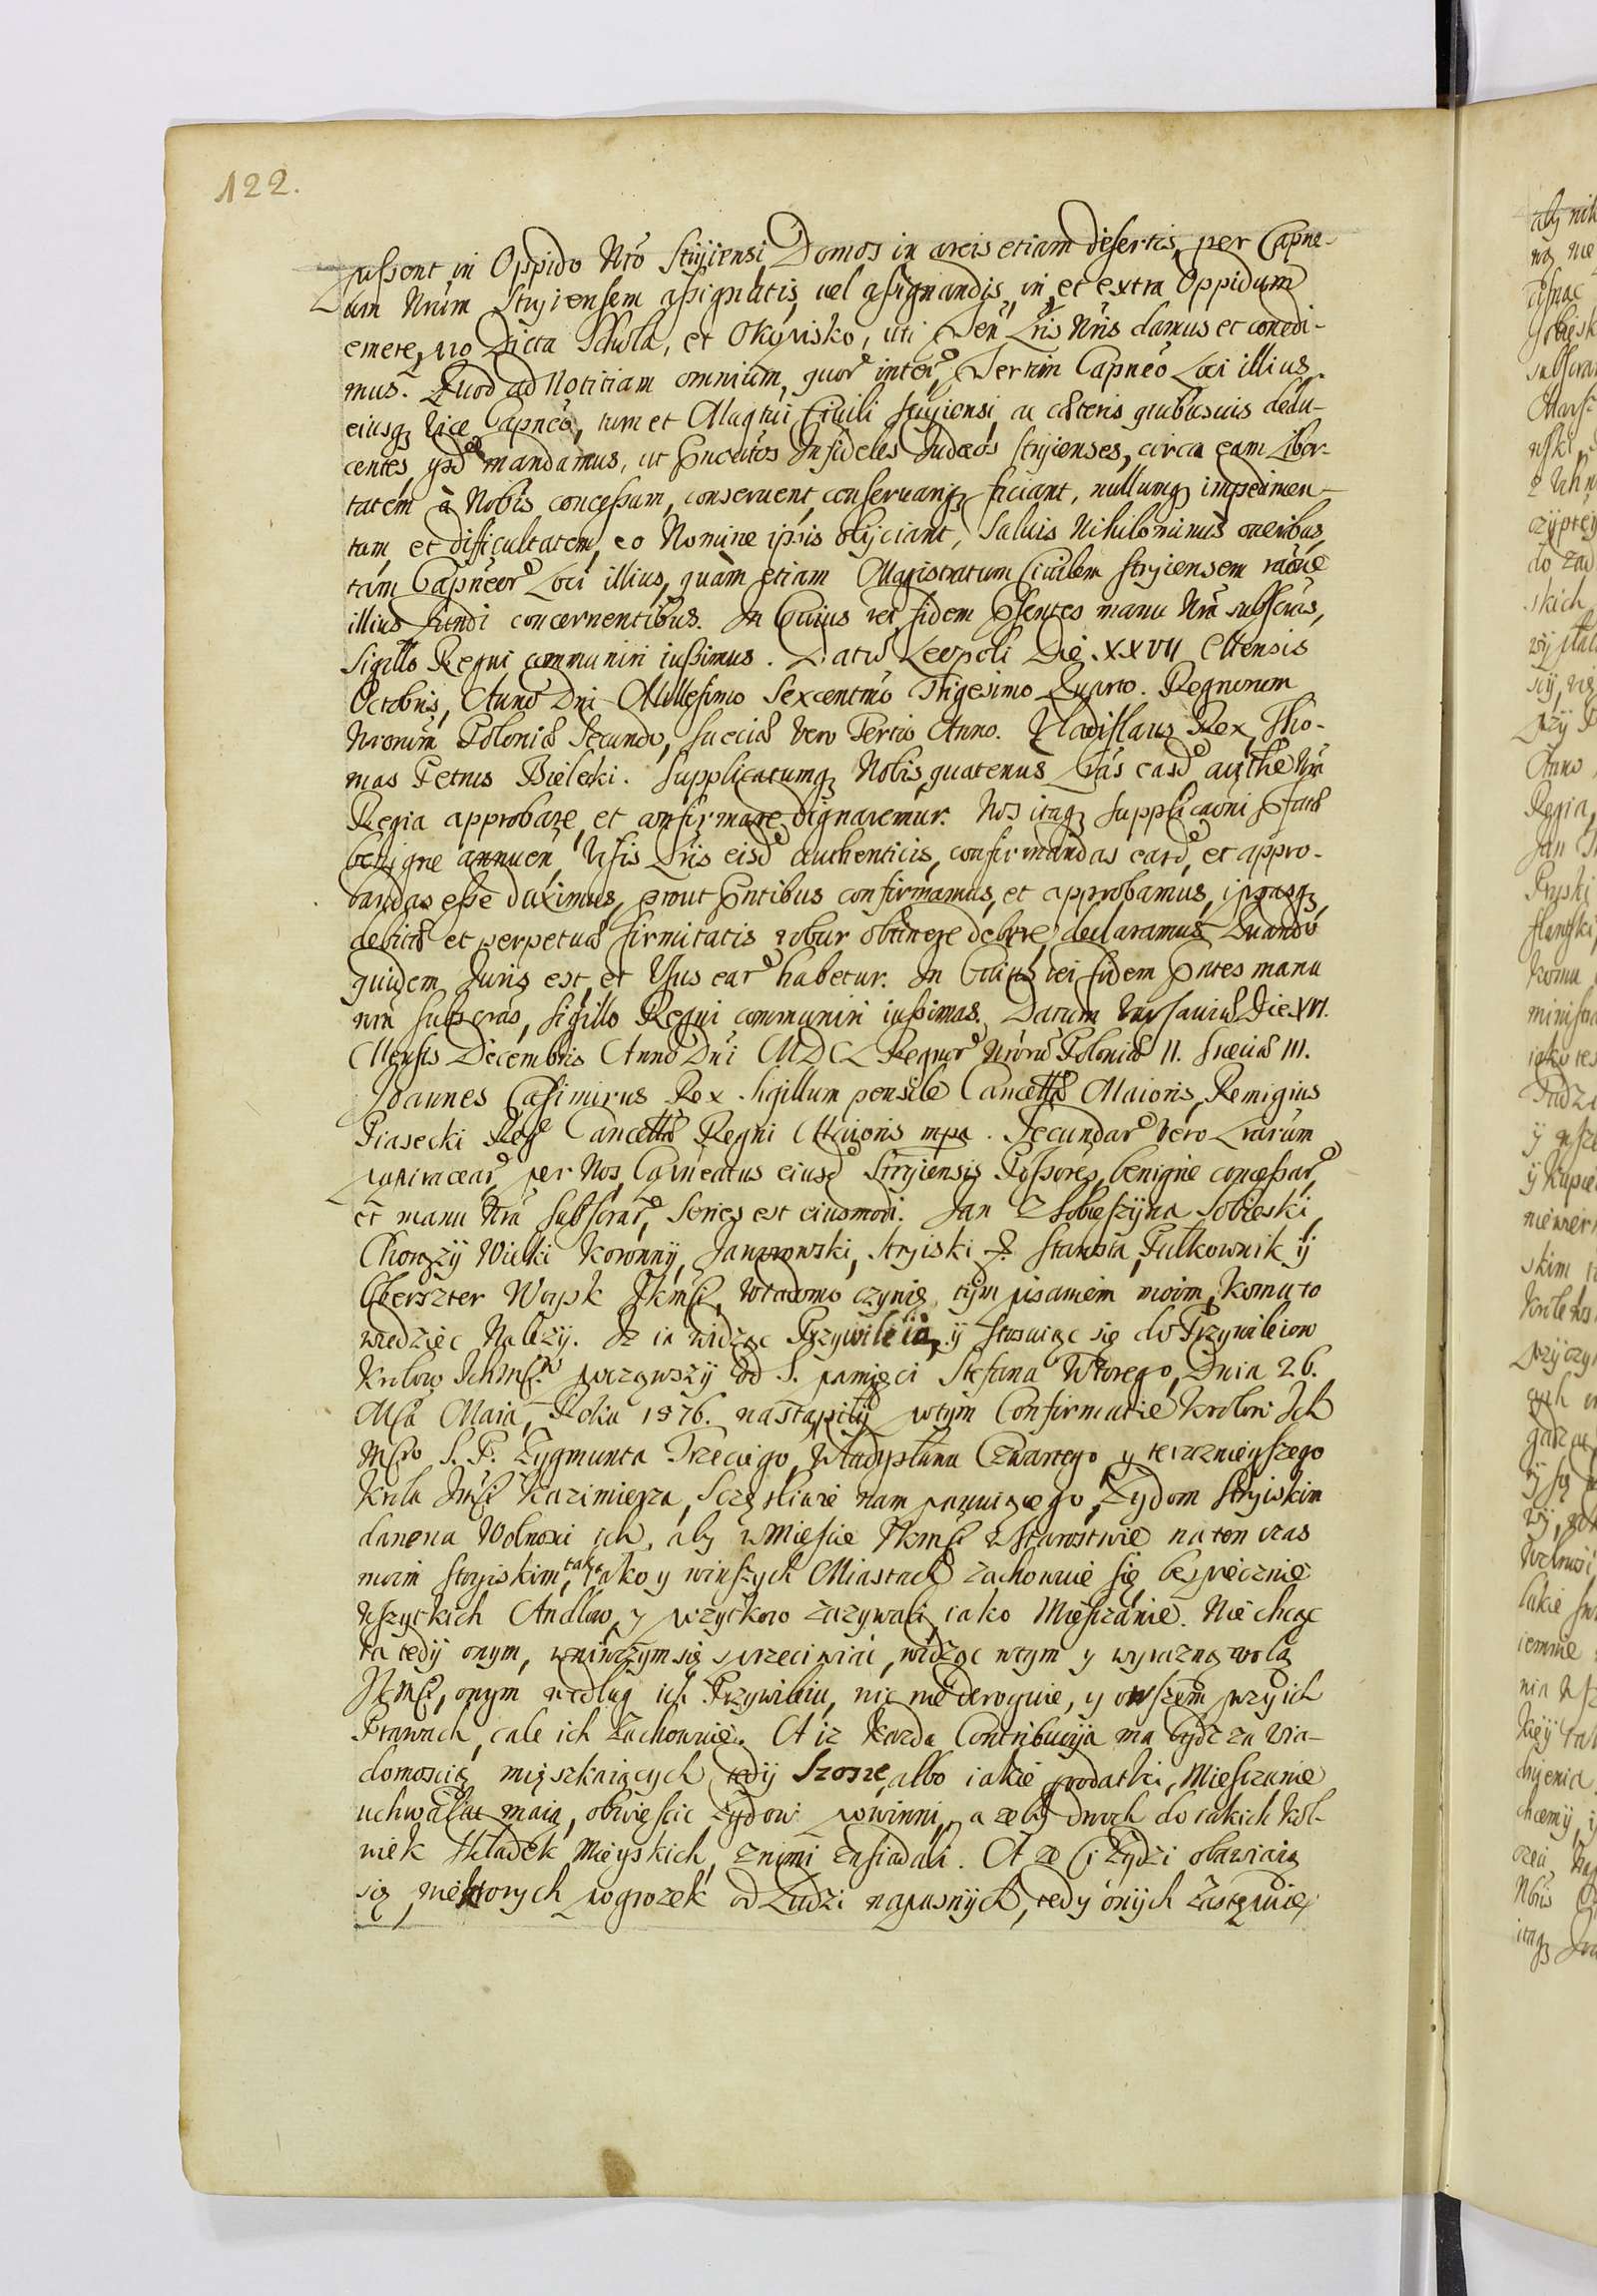 122.
possent, in Oppido Nro Stryiensi Domos in areis etiam desertis, per Capne-
um Nrum Stryiensem assignatis, vel assignandis, in, et extra Oppidum
emere, pro Dicta Schola, et Okopisko, uti Pñ Lris Nris damus et concedi-
mus. Quod ad Notitiam omnium, quor interẽ, Pertim Capneo Loci illius,
eiusq Vice Capneo, tum et Mag̃tui Civili Stryiensi, ac cæteris quibusuis dedu-
centes, ysdẽ mandamus, ut Pnoiãtos Infideles Judæos Stryienses, circa eam Liber-
tatem à Nobis concessam, conservent, conservariq faciant, nullumq impedimen-
tum, et difficultatem, eo Nomine ipsis obijciant, Salvis Nihilominus oneribus,
tám Capneor Loci illius, quàm etiam Magistratum Civilem Stryiensem raõne
illius fundi concernentibus. In Cuius rei fidem Psentes manu Nra subscras,
Sigillo Regni communiri iussimus. Datũ Leopoli Die XXVII Mensis
Octobris, Anno Dni Millesimo Sexcentmo Trigesimo Quarto. Regnorum
Nrorum Poloniæ Secundo, Sueciæ Vero Tertio Anno. Vladislaus Rex, Tho-
mas Petrus Bielecki. Supplicatumq Nobis, quatenus Lras easd authẽ Nra
Regia approbare, et confirmare dignaremur. Nos itaq Supplicaõni Pfatæ
benigne annuen, Vsis Lris eisd authenticis, confirmandas easd, et appro-
bandas esse duximus, prout Pntibus confirmamus, et approbamus, ipsasq,
debitæ et perpetuæ firmitatis robur obtinere debere, declaramus. Quando
quidem Juris est, et Vsus ear habetur. In Cuius rei fidem Pntes manu
nra subscras, Sigillo Regni communiri iussimas. Datum Varsaviæ Die XVI.
Mensis Decembris Anno Dni MDCL Regnor Nrorũ Poloniæ II. Sueciæ III.
Joannes Casimirus Rex. Sigillum pensile Cancellæ Maioris, Remigius
Piasecki Reg Cancellæ Regni Maioris mpa. Secundar Vero Lrarum
papiracear, per Nos, Capneatus eiusd Stryiensis Possores, benigne concessar,
et manu Nra Subscrar, Series est eiusmodi. Jan Z Sobieszyna Sobieski,
Chorąży Wielki Koronny, Janowski, Stryiski & Starosta, Pułkownik ÿ
Oberszter Woysk JKMsc, Wiadomo czynię, tym pisaniem moim, komu to
wiedziec Nalezy. Iz ia widząc Przywileia, ÿ stosuiąc się do Przywileiow
Krolow Ichmsc. począwszy od S. pamięci Stefana Wtorego, Dnia 26.
Msca Maia, Roku 1576. nastąpiły potym Confirmatie Krolow Ich
Mscio S. P. Zygmunta Trzeciego, Władysława Czwartego y terazniejszego
Krola Jmsc Kazimierza, Szczęsliwie nam panuiącego, Zydom Stryiskim
danena Wolnosci ich, aby w Miescie Jkmsc w Starostwie na ten czas
moim Stryiskim, tak iako y w inszych Miastach zachowuie się, bespiecznie
Wszytkich Andlow, y pozytkow zazywali, iako Mieszczanie. Nie chcąc
ia tedy onym, w niwczym się sprzeciwiac, widząc w tym y wyrazną wolą
Jkmsc, onym według ich Przywileiu, nic nie deroguie, y owszem przy ich
Prawach, cale ich zachowuie. A iz kazda Contribucyia ma bydz za Wia-
domoscią mięszkaiących, tedy Szosze, albo iakie podatki, Mieszczanie
uchwalac maią, obwiescic Zydow powinni, a zeby dwoch do iakich kol-
wiek Składek Mieyskich, z nimi zasiadali. A ze Ci Zydzi obawiaią
się, niektorych pogrozek od Ludzi napasnych, tedy onych zastępuię,